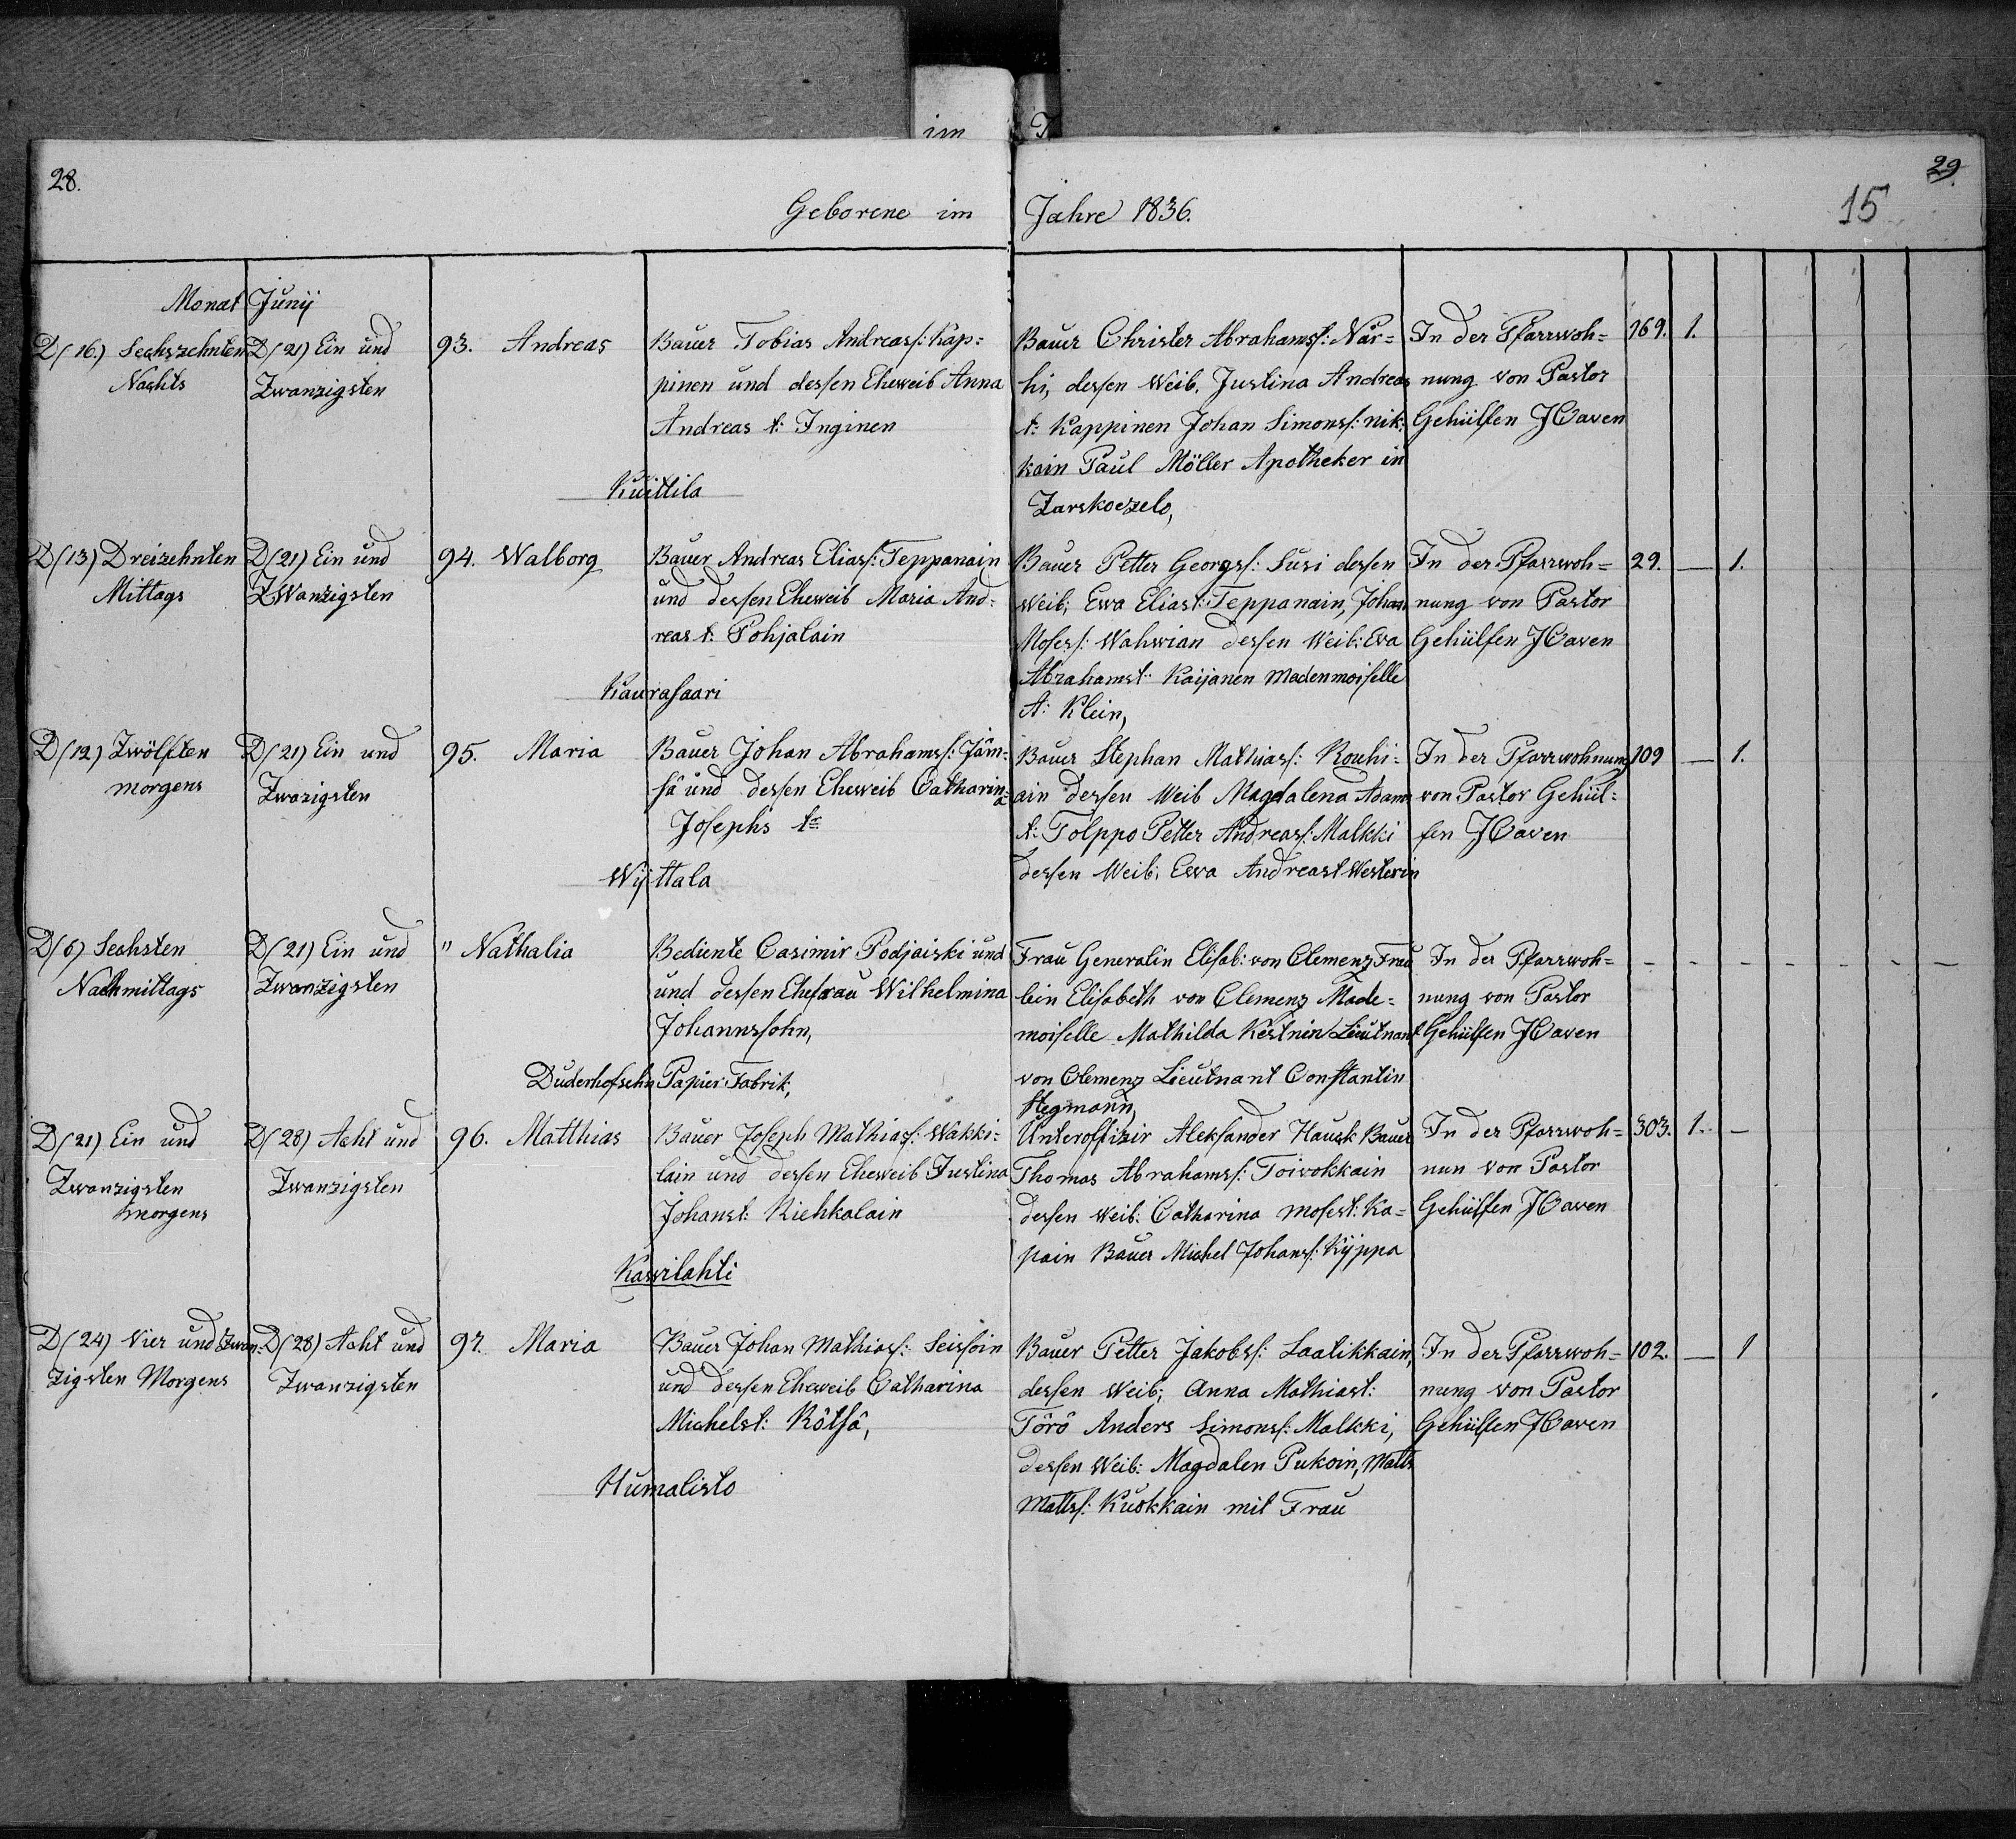 im J
28.
29.
15
Geborene im Jahre 1836.
Monat Junÿ
D (16.) Sechszehnten
Nachts
D (21) Ein und
Zwanzigsten
93. Andreas
Bauer Tobias Andreass: Kap=
pinen und dessen Eheweib Anna
Andreas t: Inginen
Kuittila
Bauer Christer Abrahamss: När=
hi, dessen Weib. Justina Andreas
t: Kappinen Johan Simonss: nik:
kain Paul Möller Apotheker in
Zarskoezelo,
In der Pfarrwoh=
nung von Pastor
Gehülfen JCaven
169. 1.
D (13) Dreizehnten
Mittags
D (21) Ein und
ZWanzigsten
94. Walborg
Bauer Andreas Eliass: Teppanain
und dessen Eheweib Maria And:
reas t: Pohjalain
Kaurasaari
Bauer Petter Georgss: Susi dessen
Weib; Ewa Eliast: Teppanain, Johan
Mosess: Wahwian dessen Weib: Eva
Abrahamst: Kaijanen Madenmoiselle
A: Klein,
In der Pfarrwoh=
nung von Pastor
Gehülfen JCaven
29. — 1.
D (12) Zwölften
morgens
D (21) Ein und
Zwazigsten
95. Maria
Bauer Johan Abrahamss: Jäm:
sä und dessen Eheweib Catharin:
a
Josephs t:
Wÿttala
Bauer Stephan Mathiass: Rouhi=
ain dessen Weib Magdalena Adam
t: Tolppo Petter Andreass: Malkki
dessen Weib; Ewa Andreast Westerin
In der Pfarrwohnung
von Pastor Gehül=
fen JCaven
109 — 1.
D (6) Sechsten
Nachmittags
D (21) Ein und
Zwanzigsten
" Nathalia
Bediente Casimir Podjaiski und
und dessen Ehefrau Wilhelmina
Johannssohn,
Duderhofschn Papier: Fabrik,
Frau Generalin Elisab: von Clemenz Frau
lein Elisabeth von Clemenz Made=
moiselle Mathilda Kestnin Lieutnant
von Clemenz Lieutnant Constantin
Stegmann,
In der Pfarrwoh=
nung von Pastor
Gehülfen JCaven
- - - - - - —
D (21) Ein und
Zwanzigsten
morgens
D (28) Acht und
Zwanzigsten
96. Matthias
Bauer Joseph Mathiass: Wakki=
lain und dessen Eheweib Justina
Johanst: Kiehkalain
Kawilahti
Unteroffizir Aleksander Hausk Bauer
Thomas Abrahamss: Toivokkain
dessen Weib: Catharina Mosest: Ka=
pain Bauer Michel Johanss: Kÿppa
In der Pfarrwoh=
nun von Pastor
Gehülfen JCaven
303. 1. —
D (24) Vier und Zwan:
zigsten Morgens
D (28) Acht und
Zwanzigsten
97. Maria
Bauer Johan Mathiass: Seissoin
und dessen Eheweib Catharina
Michelst: Rötsä,
Humalisto
Bauer Petter Jakobss: Laalikkain,
dessen Weib; Anna Mathiast:
Törö Anders Simonss: Malkki,
dessen Weib: Magdalen Pukoin, Matts
Mattss: Kuokkain mit Frau
In der Pfarrwoh=
nung von Pastor
Gehülfen JCaven
102. — 1